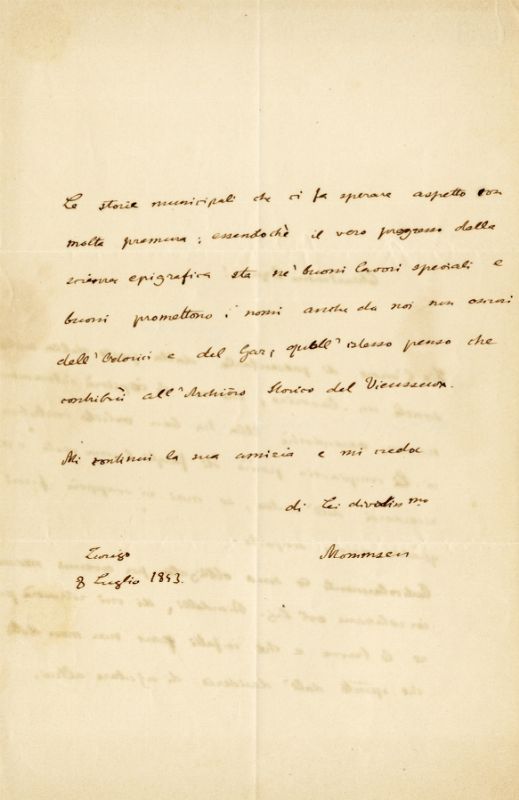 Le storie municipali che ci fa sperare aspetto con
molta premura; essendochè il vero progresso della
scienza epigrafica sta ne' buoni lavori speciali e
buoni promettono i nomi anche da noi non oscuri
dell' Odorici e del Gar, quell' istesso penso che
contribuì all' Archivio Storico del Vieusseux.
Mi continui la sua amicia e mi creda
di Lei divotiss mo
Mommsen
Zurigo
8 Luglio 1853.